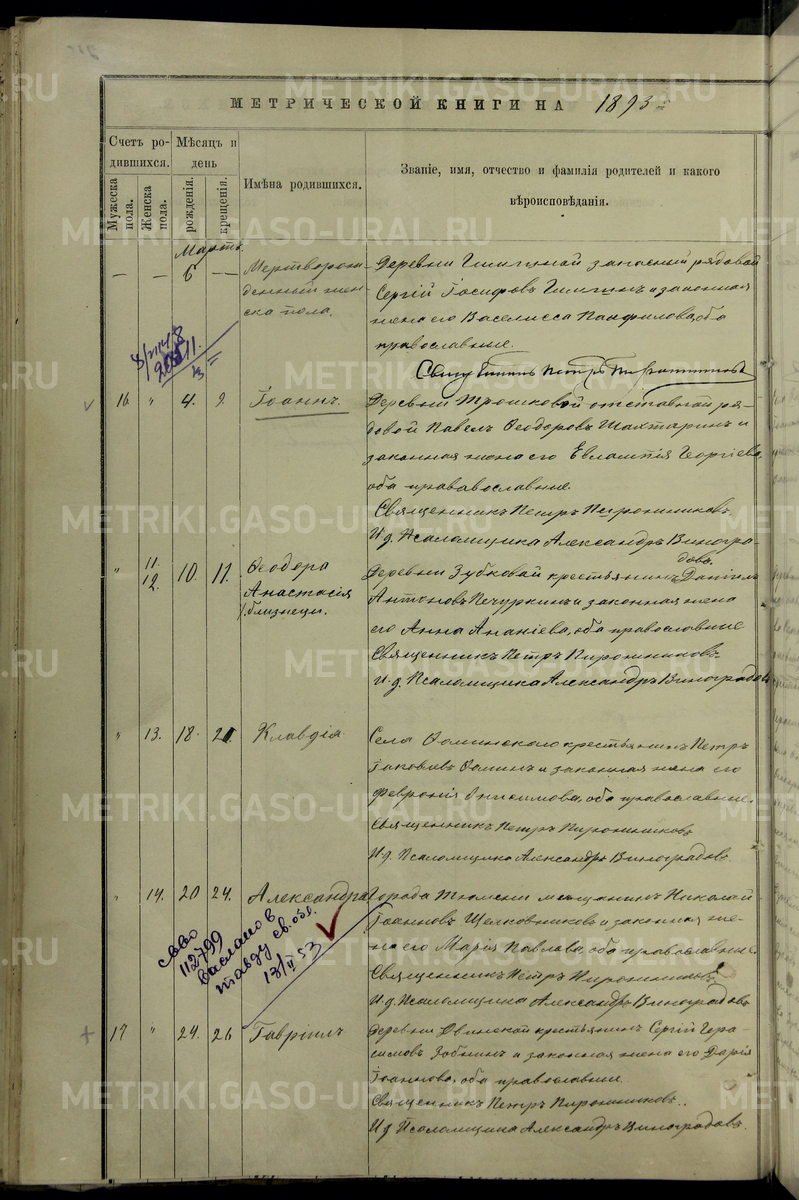 МЕТРИЧЕСКОЙ КНИГИ НА 1893
Счетъ ро-
дившихся.
Мужеска
пола.
Женска
пола.
Мѣсяцъ и
день
рожденія.
крещенія.
Имѣна родившихся.
Званіе, имя, отчество и фамилія родителей и какого
вѣроисповѣданія.
Мартъ.
— — 6 —
Мертворож-
денный жен-
ска пола.
Деревни запасный рядовой
Сергій Іосифовъ и законная
жена его Василисса Панфилова, оба
православные.
16 " 4. 9.
Іоаннъ.
Деревни Трошковой отставной ря-
довой Павелъ Ѳеодоровъ Шахтаринъ и
законная жена его Евлампія Георгіева,
оба прававославные.
Священникъ Петръ Пироженниковъ.
И.д. Псаломщика Александръ Виногра-
довъ.
" 11. 12. 10. 11.
Ѳеодора
Анастасія
близнецы.
Деревни Зубковой крестьянинъ Даніилъ
Антоновъ Печуркинъ и законная жена
его Анна Ананіева, оба православные
Священникъ Петръ Пироженниковъ
И.д. Псаломщика Александръ Виноградовъ
" 13. 18. 21.
Клавдія
Села крестьянинъ Петръ
Іаковлевъ Ѳоминъ и законная жена его
Февронія Анисимова, оба православные.
Священникъ Петръ Пироженниковъ
И.д. Псаломщика Александръ Виноградовъ
" 14. 20 24.
Александра
Города Тюмени мещанинъ Николай
Іоанновъ Щелковниковъ и законная же-
на его Марія Павлова, оба православные.
Священникъ Петръ Пироженниковъ
И.д. Псаломщика Александръ Виноградовъ
112799
выслано в
Тавду св. о
13/II 53
17 " 24. 26
Гавріилъ
Деревни крестьянинъ Сергій Гера-
симовъ Зобнинъ и законная жена его Дарія
Іоаннова, оба православные.
Священникъ Петръ Пироженниковъ.
И.д. Псаломщика Александръ Виноградовъ.
METRIKI.GASO-URAL.RU